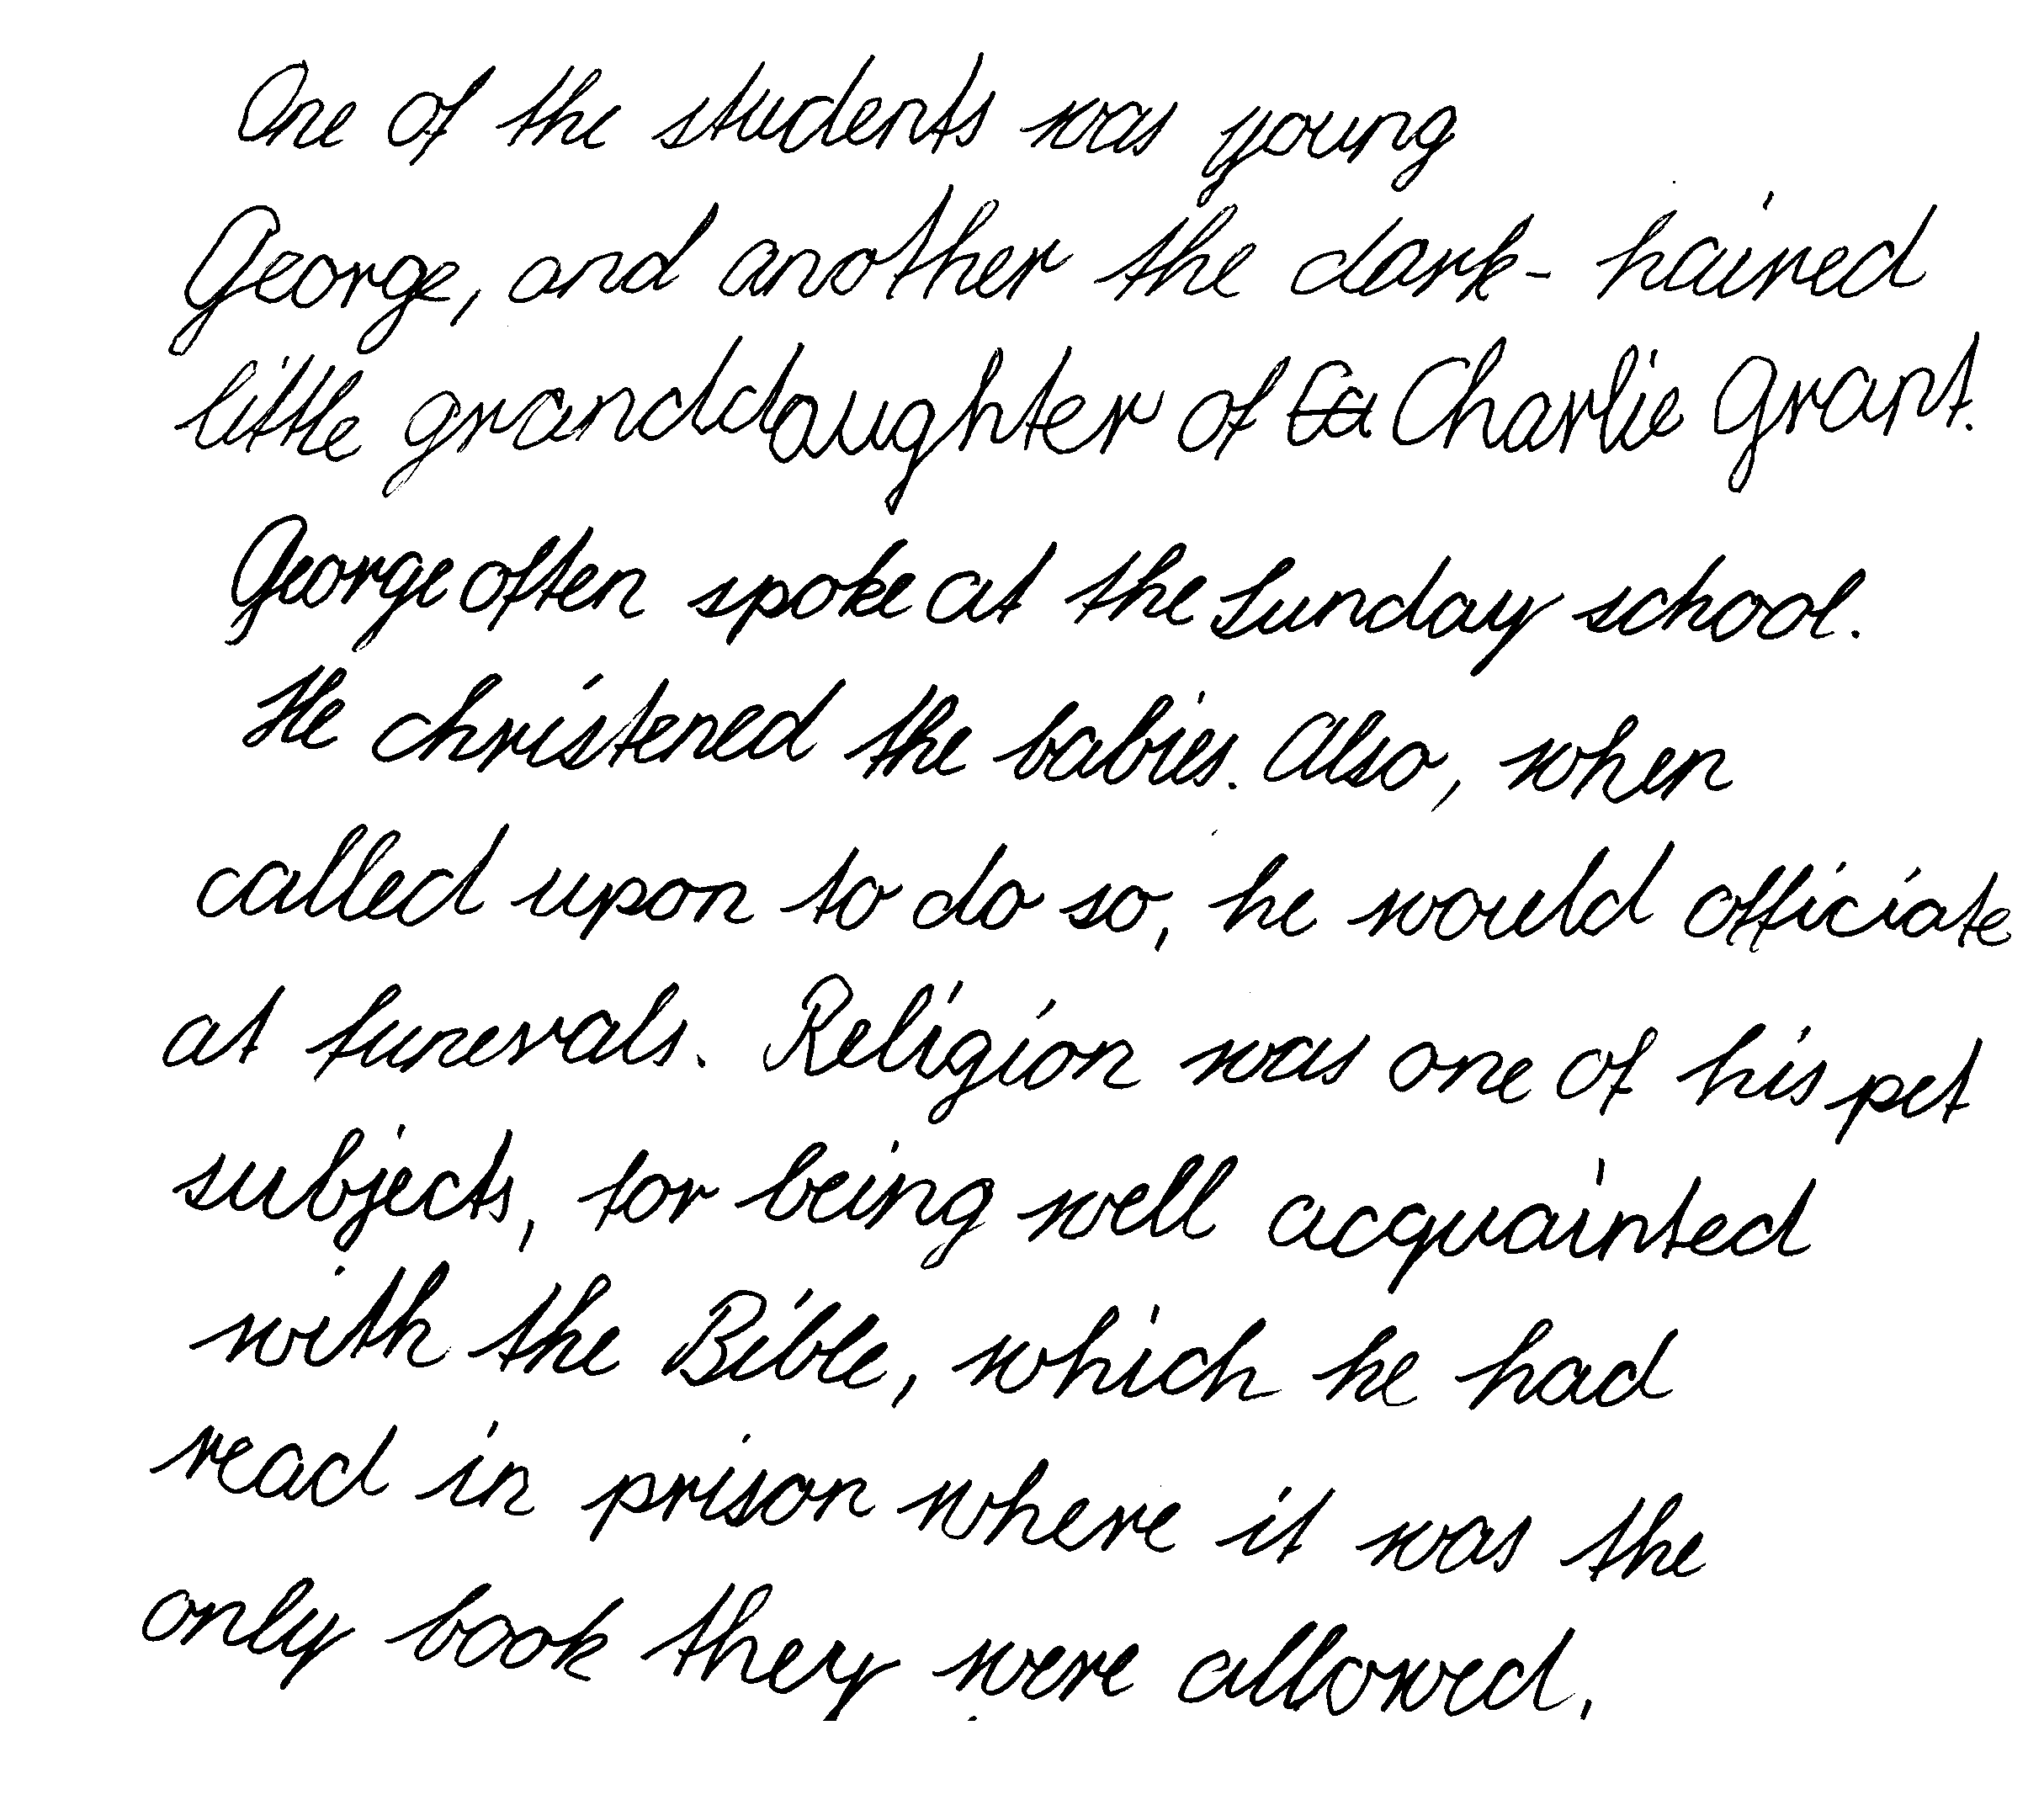 One of the students was young
George, and another the dark-haired
little granddaughter of Ca Charlie Grant.
George often spoke at the Sunday school.
He christened the babies. Also, when
called upon to do so, he would officiate
at funerals. Religion was one of his pet
subjects, for being well acquainted
with the Bible, which he had
read in prison where it was the
only book they were allowed.